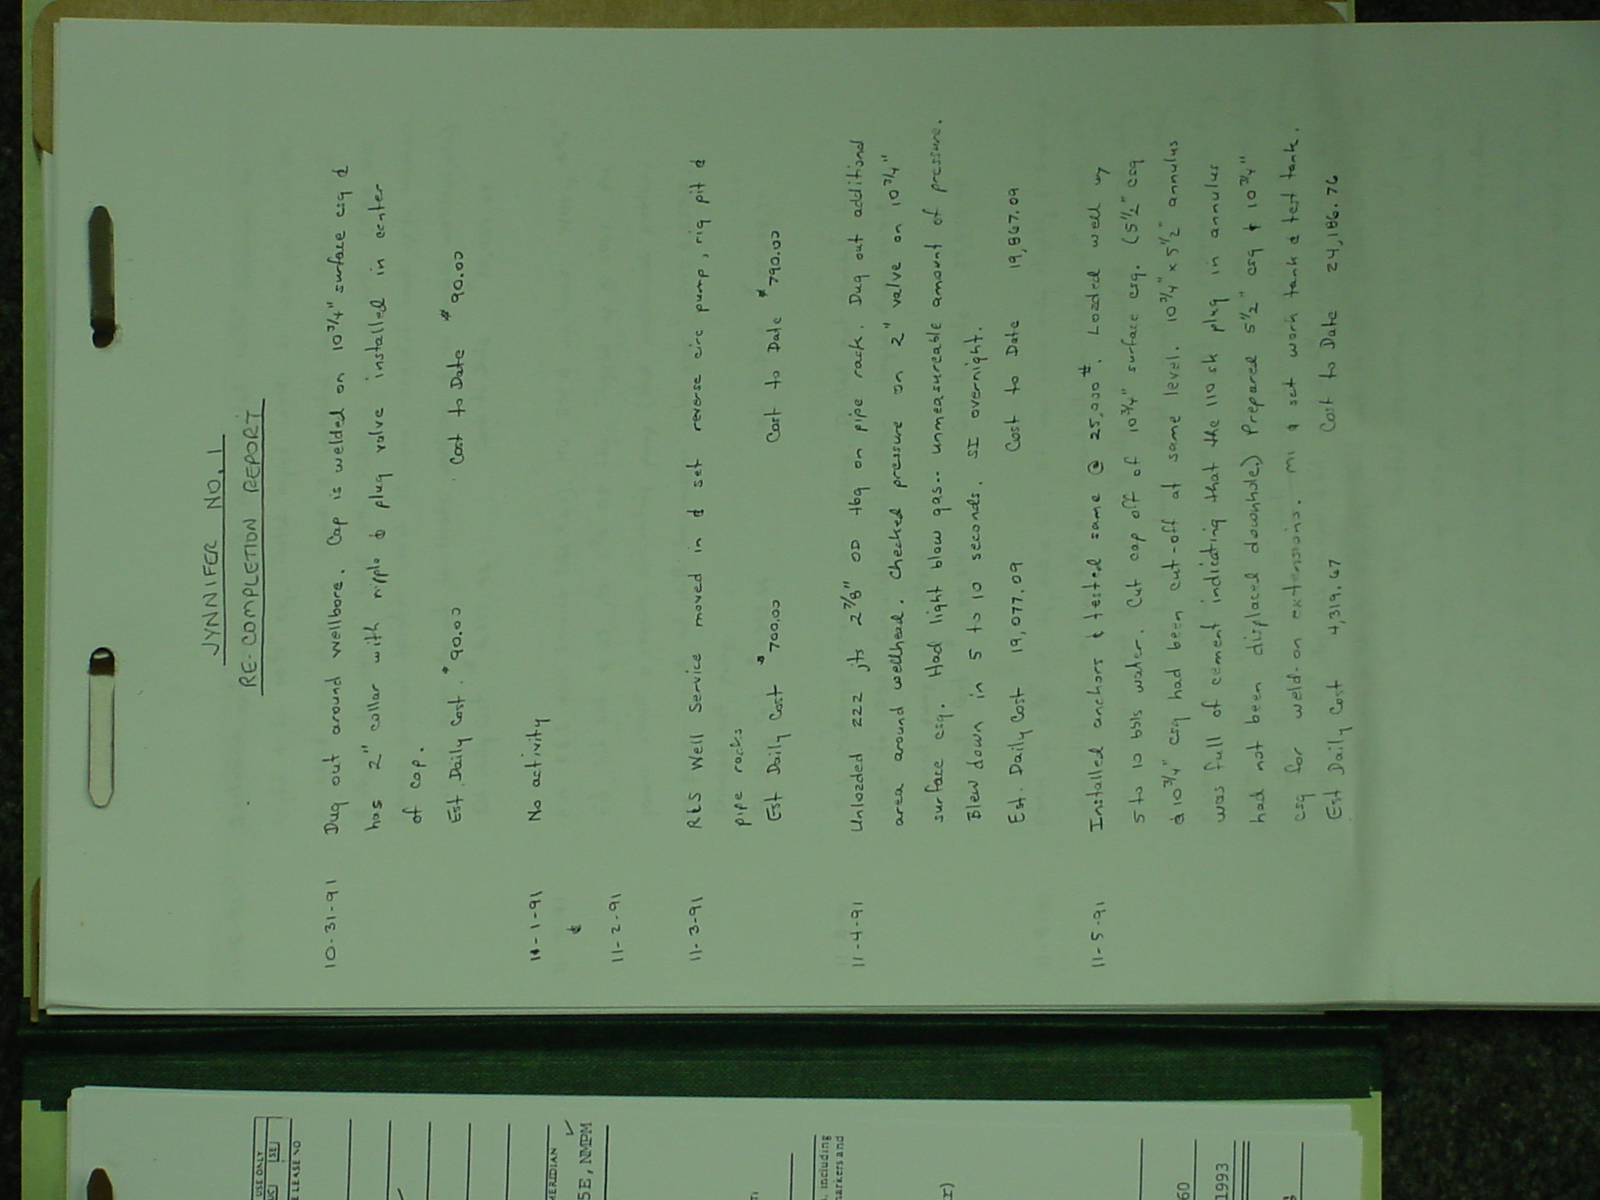 JYNNIFER NO. 1
RE-COMPLETION REPORT
10-31-91 Dug out around wellbore. Cap is welded on 10 3/4" surface csg &
has 2" collar with nipple & plug valve installed in center
of cap.
Est. Daily Cost. $90.00 Cost to Date $90.00
11-1-91 No activity
&
11-2-91
11-3-91 R&S Well Service moved in & set reverse circ pump, rig pit &
pipe racks
Est Daily Cost $700.00 Cost to Date $790.00
11-4-91 Unloaded 222 jts 2 7/8" OD tbg on pipe rack. Dug out additional
area around wellhead. Checked pressure on 2" valve on 10 3/4"
surface csg. Had light blow gas-- unmeasureable amount of pressure.
Blew down in 5 to 10 seconds. SI overnight.
Est. Daily Cost 19,077.09 Cost to Date 19,867.09
11-5-91 Installed anchors & tested same @ 25,000#. Loaded well w/
5 to 10 bbls water. Cut cap off of 10 3/4" surface csg. (5 1/2" csg
& 10 3/4" csg had been cut-off at same level. 10 3/4" x 5 1/2" annulus
was full of cement indicating that the 110 sk plug in annulus
had not been displaced downhole.) Prepared 5 1/2" csg & 10 3/4"
csg for weld-on extensions. MI & set work tank & test tank.
Est Daily Cost 4,319.67 Cost to Date 24,186.76
USE ONLY
SE
LEASE NO
MERIDIAN
5E, NMPM
including
markers and
r)
60
1993